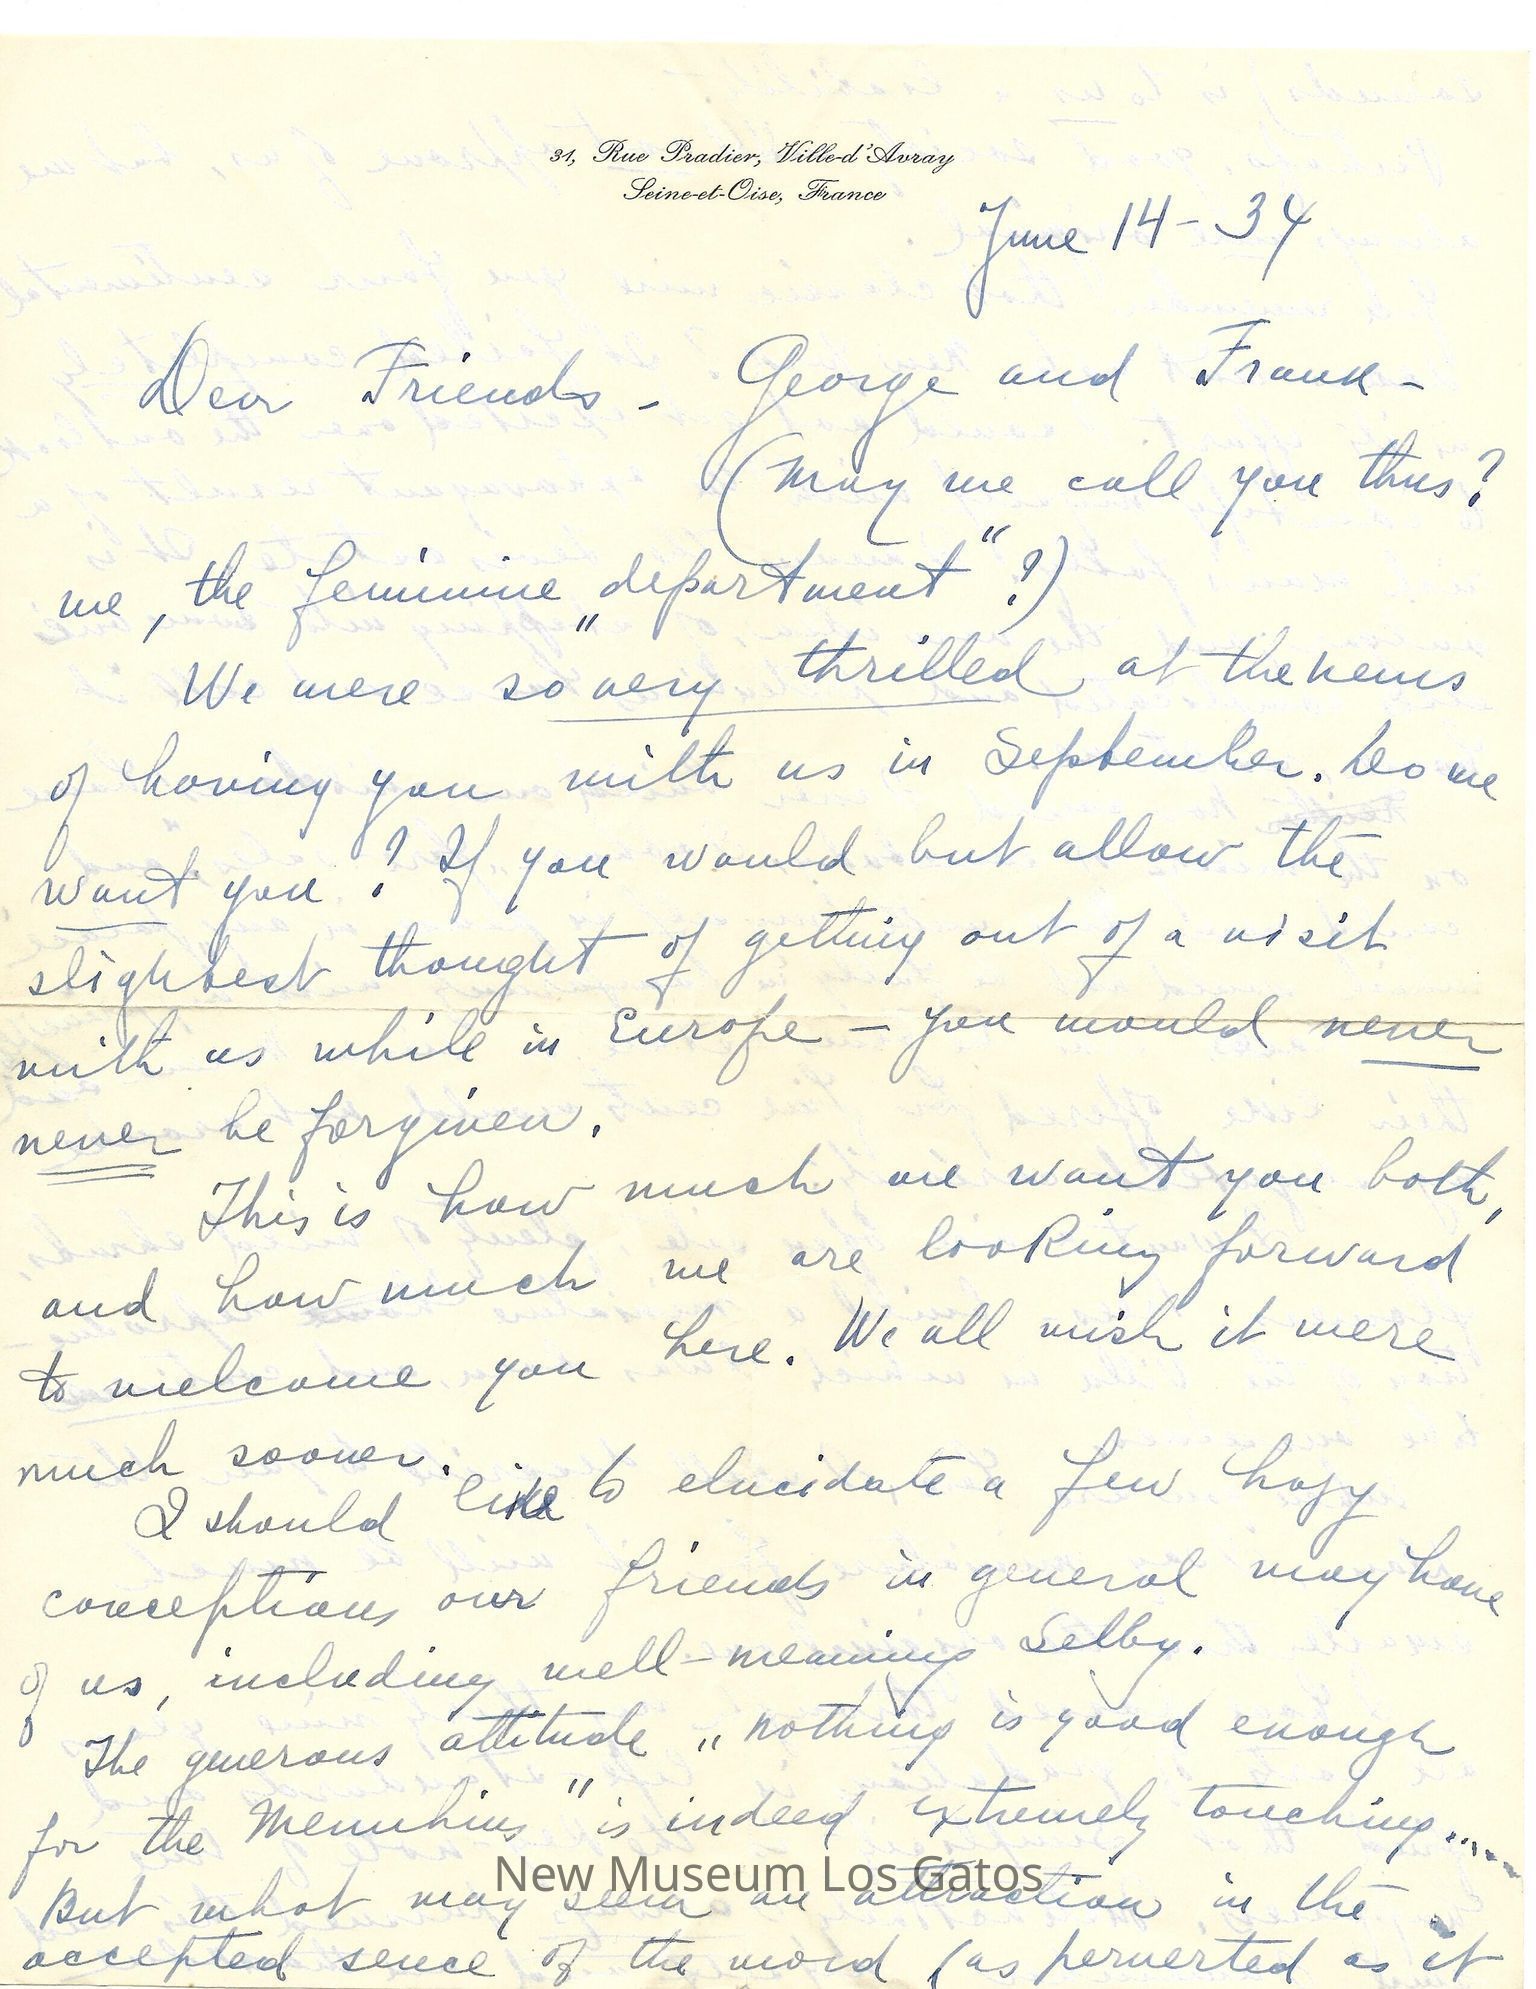 31, Rue Pradier, Ville-d'Avray
Seine-et-Oise, France
June 14 - 34
Dear Friends - George and Frank -
(May we call you thus?
we, the feminine „department" ?)
We were so very thrilled at the news
of having you with us in September. Do we
want you ? If you would but allow the
slightest thought of getting out of a visit
with us while in Europe - you would never
never be forgiven.
This is how much we want you both,
and how much we are looking forward
to welcome you here. We all wish it were
much sooner.
I should like to elucidate a few hazy
conceptions our friends in general may have
of us, including well-meaning Selby.
The generous attitude „nothing is good enough
for the Menuhins" is indeed extremely touching.....
But what may seem an attraction in the
accepted sence of the word (as perverted as it
New Museum Los Gatos